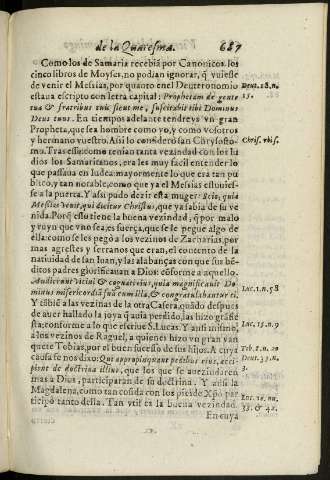 de la Quaresma. 687
Como los de Samaria recebiã por Canonicos los
cinco libros de Moyses, no podian ignorar, q̃ vuiesse
de venir el Messias, por quanto en el Deuteronomio
estaua escripto con letra capital: Prophetam de gente
tua & fratribus tuis sicut me, suscitabit tibi Dominus
Deus tuus. En tiempos adelante tendreys vn gran
Propheta, que sea hombre como yo, y como vosotros
y hermano vuestro. Assi lo consideró san Chrysosto-
mo. Tras esso como tenian tanta vezindad con los Iu
dios los Samaritanos, era les muy facil entender lo
que passaua en Iudea: mayormente lo que era tan pu
blico, y tan notable, como que ya el Messias estuuies-
se a la puerta. Y assi pudo dezir esta muger: Scio, quia
Messias venit, qui dicitur Christus, que ya sabia de su ve
nida. Porq̃ esto tiene la buena vezindad, q̃ por malo
y ruyn que vno sea, es fuerça, que se le pegue algo de
ella: como se les pegó a los vezinos de Zacharias, por
mas agrestes y serranos que eran, el contento de la
natiuidad de san Iuan, y las alabanças con que sus bẽ-
ditos padres glorificauan a Dios: cõforme a aquello.
Audierunt vicini & cognati eius, quia magnificauit Do-
minus misericordiã suã cum illa, & congratulabantur ei.
Y cõbió a las vezinas de la otra Casera, quãdo despues
de auer hallado la joya q̃ auia perdido, las hizo grãfie
sta; conforme a lo que escriue S. Lucas. Y ansi mismo
a los vezinos de Raguel, a quienes hizo vn gran van
quete Tobias, por el buen sucesso de sus hijos. A cuya
causa se nos dixo: Qui appropinquant pedibus eius, acci-
pient de doctrina illius, que los que se auezindaren
mas a Dios, participaran de su doctrina. Y ansi la
Magdalena, como tan cosida con los pies de Xp̃o par
ticipó tanto della. Tan vtil es la buena vezindad.
En cuya
Deut. 18. n.
15.
Chris. vbi s.
Luc. 1. n. 58
Luc. 15. n. 9
Tob. 8. n. 20
Deut. 33. n.
3.
Luc. 10. nu.
39. & 42.